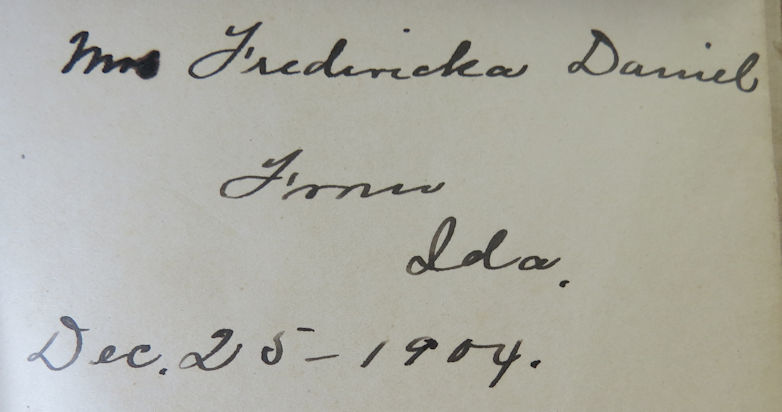 Mrs Fredericka Daniel
From
Ida.
Dec. 25 - 1904.